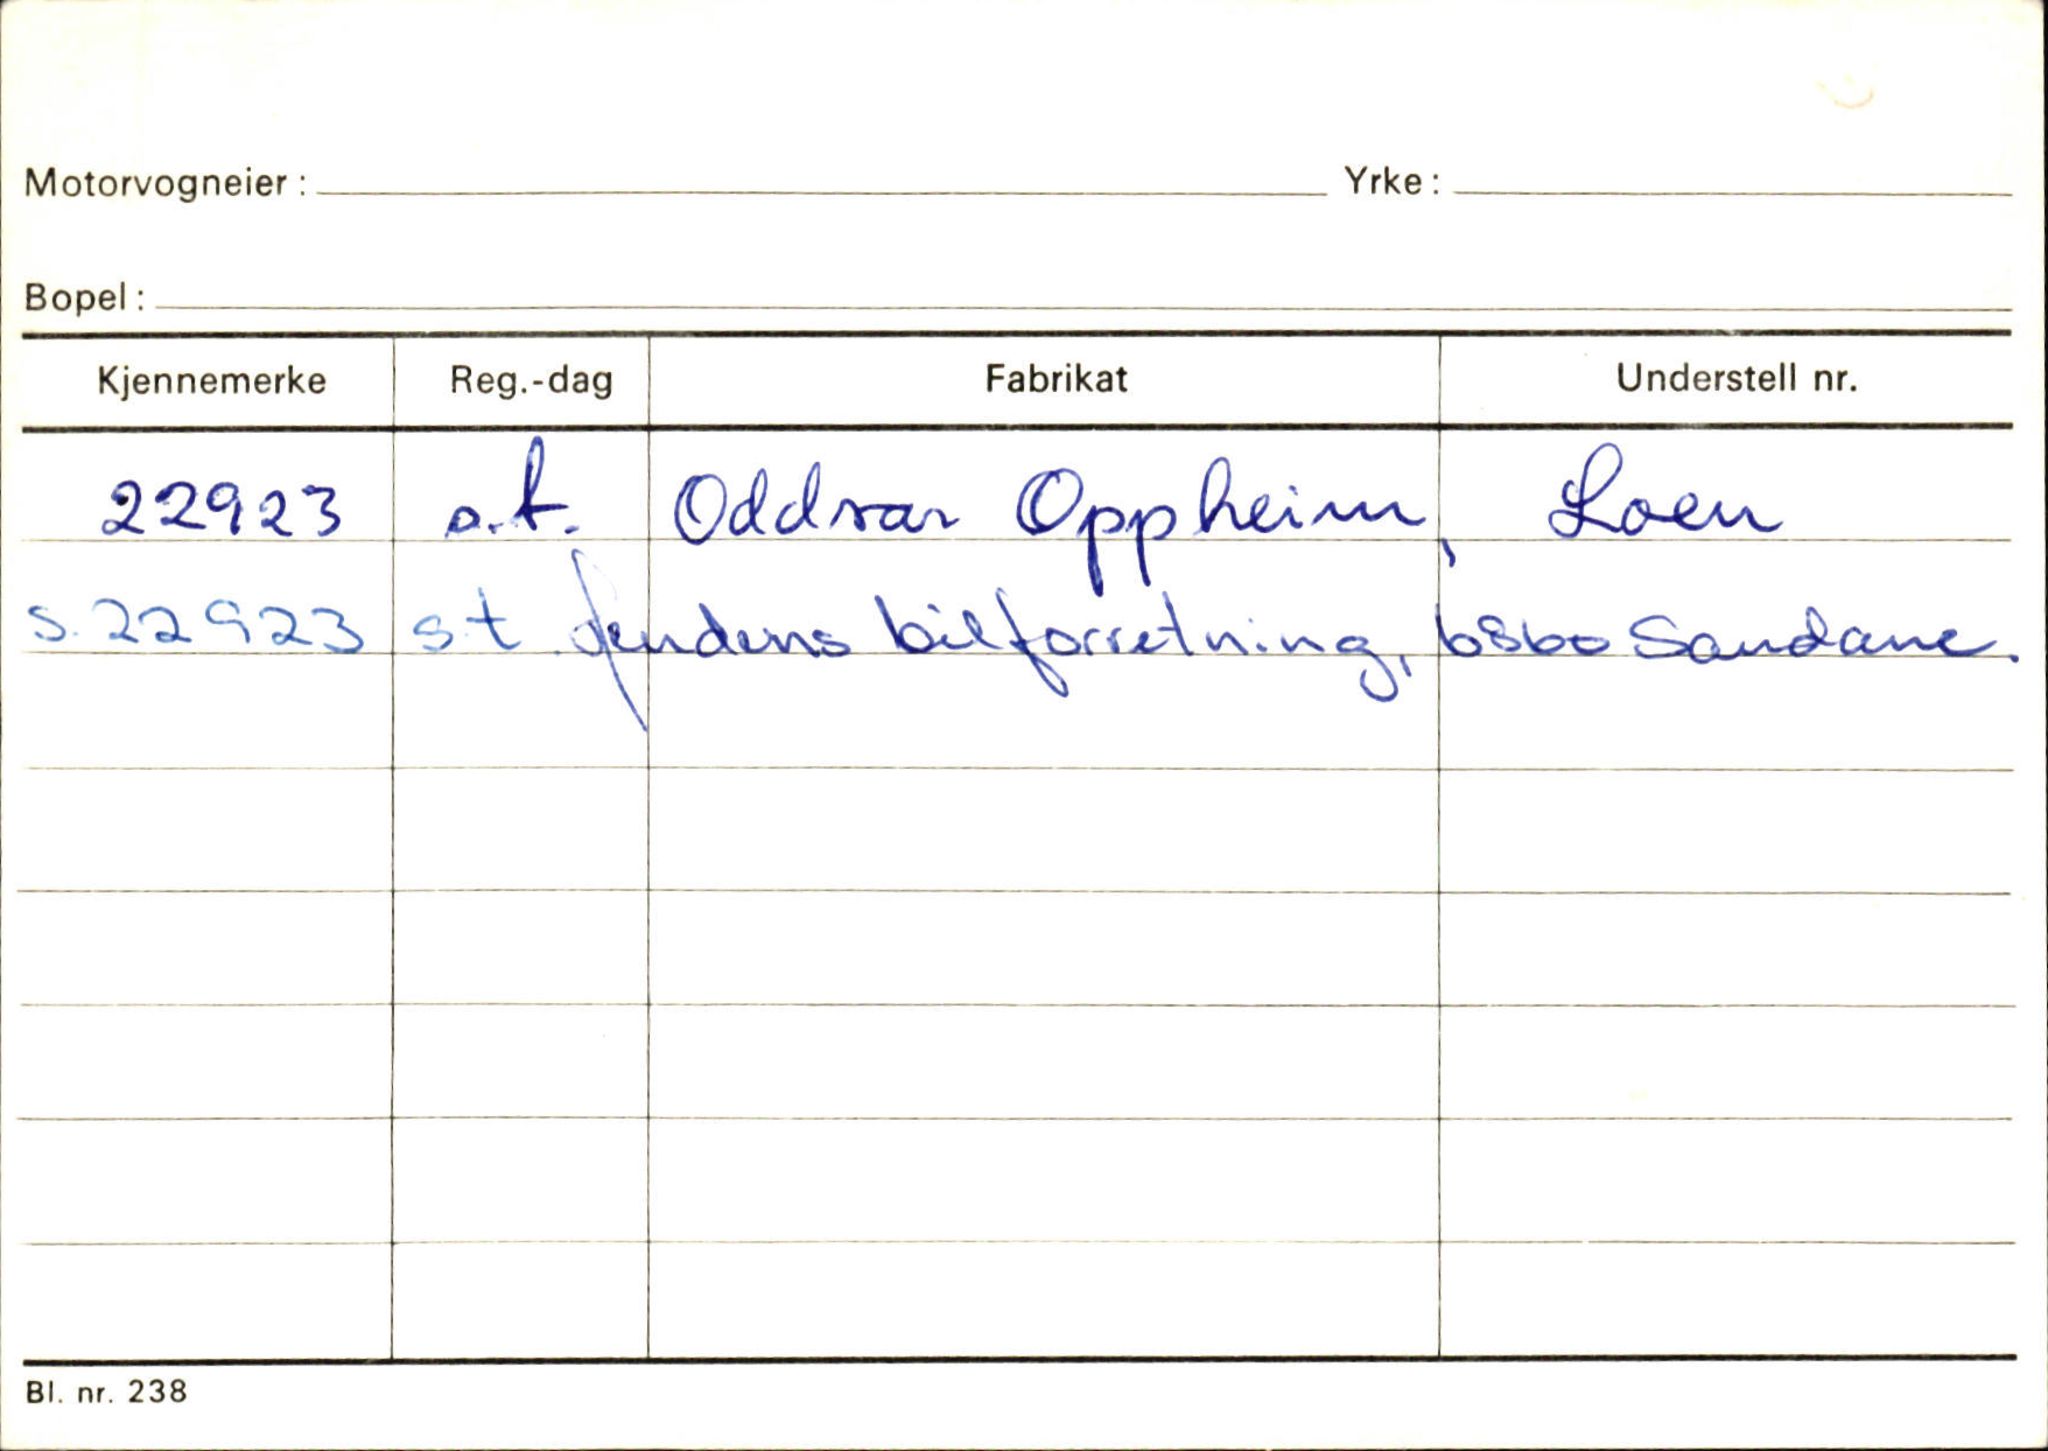 Motorvogneier: Yrke:
Bopel:
Kjennemerke Reg.-dag Fabrikat Understell nr.
22923 s.t. Oddvar Oppheim, Loen
S.22923 s.t. bilforretning, 6860 Sandane.
Bl. nr. 238